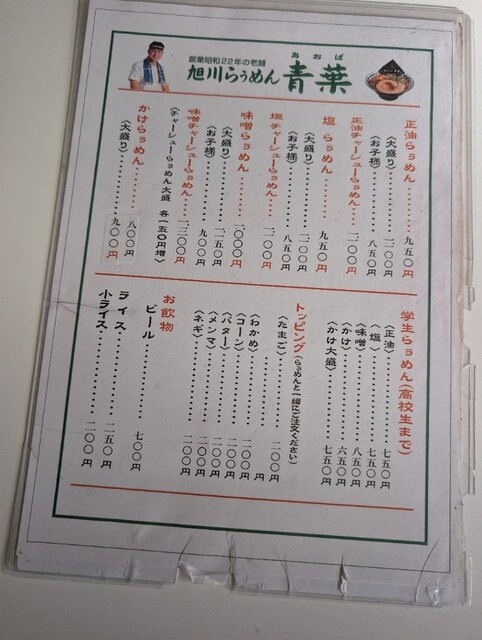 創業昭和22年の老舗
旭川らぅめん
あおば
青葉
正油らぅめん………九五〇円
(大盛り)………一、一〇〇円
(お子様)………八五〇円
正油チャーシューらぅめん……一、二〇〇円
塩らぅめん………九五〇円
(大盛り)………一、一〇〇円
(お子様)………八五〇円
塩チャーシューらぅめん……一、二〇〇円
味噌らぅめん………一、〇〇〇円
(大盛り)………一、一五〇円
(お子様)………九〇〇円
味噌チャーシューらぅめん……一、三〇〇円
(チャーシューらぅめん大盛 各一五〇円増)
かけらぅめん………八〇〇円
(大盛り)………九〇〇円
学生らぅめん(高校生まで)
(正油)………七五〇円
(塩)………七五〇円
(味噌)………八五〇円
(かけ)………六五〇円
(かけ大盛)………七五〇円
トッピング(らぅめんと一緒にご注文ください)
(たまご)………一〇〇円
(わかめ)………円
(コーン)………一〇〇円
(バター)………一〇〇円
(メンマ)………二〇〇円
(ネギ)………二〇〇円
お飲物
ビール………七〇〇円
ライス………二五〇円
小ライス………二〇〇円